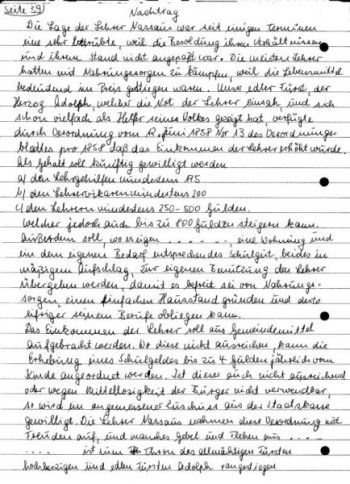 Seite 59)
Nachtrag
Die Lage der Lehrer Nassaus war seit einigen Terminen
eine sehr betrübte, weil die Besoldung ihren Verhältnissen
und ihrem Stand nicht angepaßt war. Die meisten Lehrer
hatten mit Nahrungssorgen zu kämpfen, weil die Lebensmittel
bedeutend im Preis gestiegen waren. Unser edler Fürst, der
Herzog Adolph, welcher die Not der Lehrer einsah, und sich
schon vielfach als Helfer seines Volkes gezeigt hat, verfügte
durch Verordnung vom 12. Juni 1858 Nr 13 des Verordnungs-
blattes pro 1858 daß das Einkommen der Lehrer erhöht würde.
Als Gehalt soll künftig gewilligt werden
a) den Lehrgehilfen mindestens 175
b) den Lehrvikaren mindestens 200
c) den Lehrern mindestens 250-500 Gulden.
welcher jedoch auch bis zu 800 Gulden steigern kann.
Außerdem soll, wo es eigen . . . . . . , eine Wohnung und
ein dem eigenen Bedarf entsprechendes Schulgut, beides in
mäßigem Aufschlag, zur eigenen Benutzung den Lehrer
übergeben werden, damit es befreit sei von Nahrungs-
sorgen, einen einfachen Hausstand gründen und desto
eifriger seinem Berufe obliegen kann.
Das Einkommen der Lehrer soll aus Gemeindemittel
aufgebracht werden. Wo diese nicht ausreichen, kann die
Erhebung eines Schulgeldes bis zu 4 Gulden jährlich vom
Kinde angeordnet werden. Ist dieses auch nicht ausreichend
oder wegen Mittellosigkeit der Bürger nicht verwendbar,
so wird ein angemessener Zuschuss aus der Staatskasse
gewilligt. Die Lehrer Nassaus nahmen diese Verordnung mit
Freuden auf, und manches Gebet und Flehen aus . . . .
. . . . . ist zum Thron des allmächtigen Fürsten
hochherzigen und edlen Fürsten Adolph